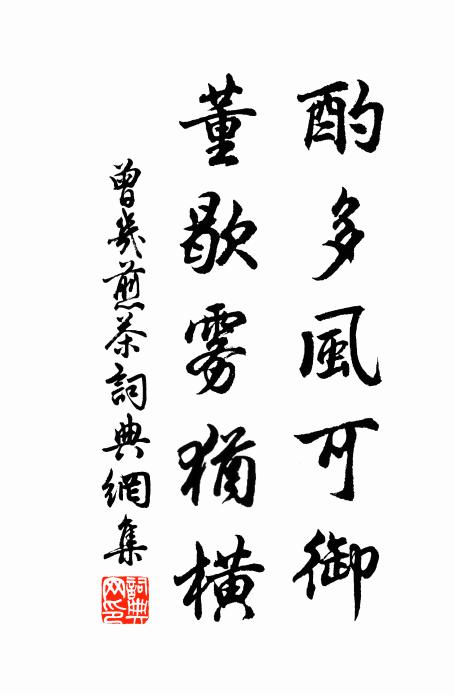 酌多風可御
董歇雾猶橫
曾幾煎茶詞典網集
詞典网印